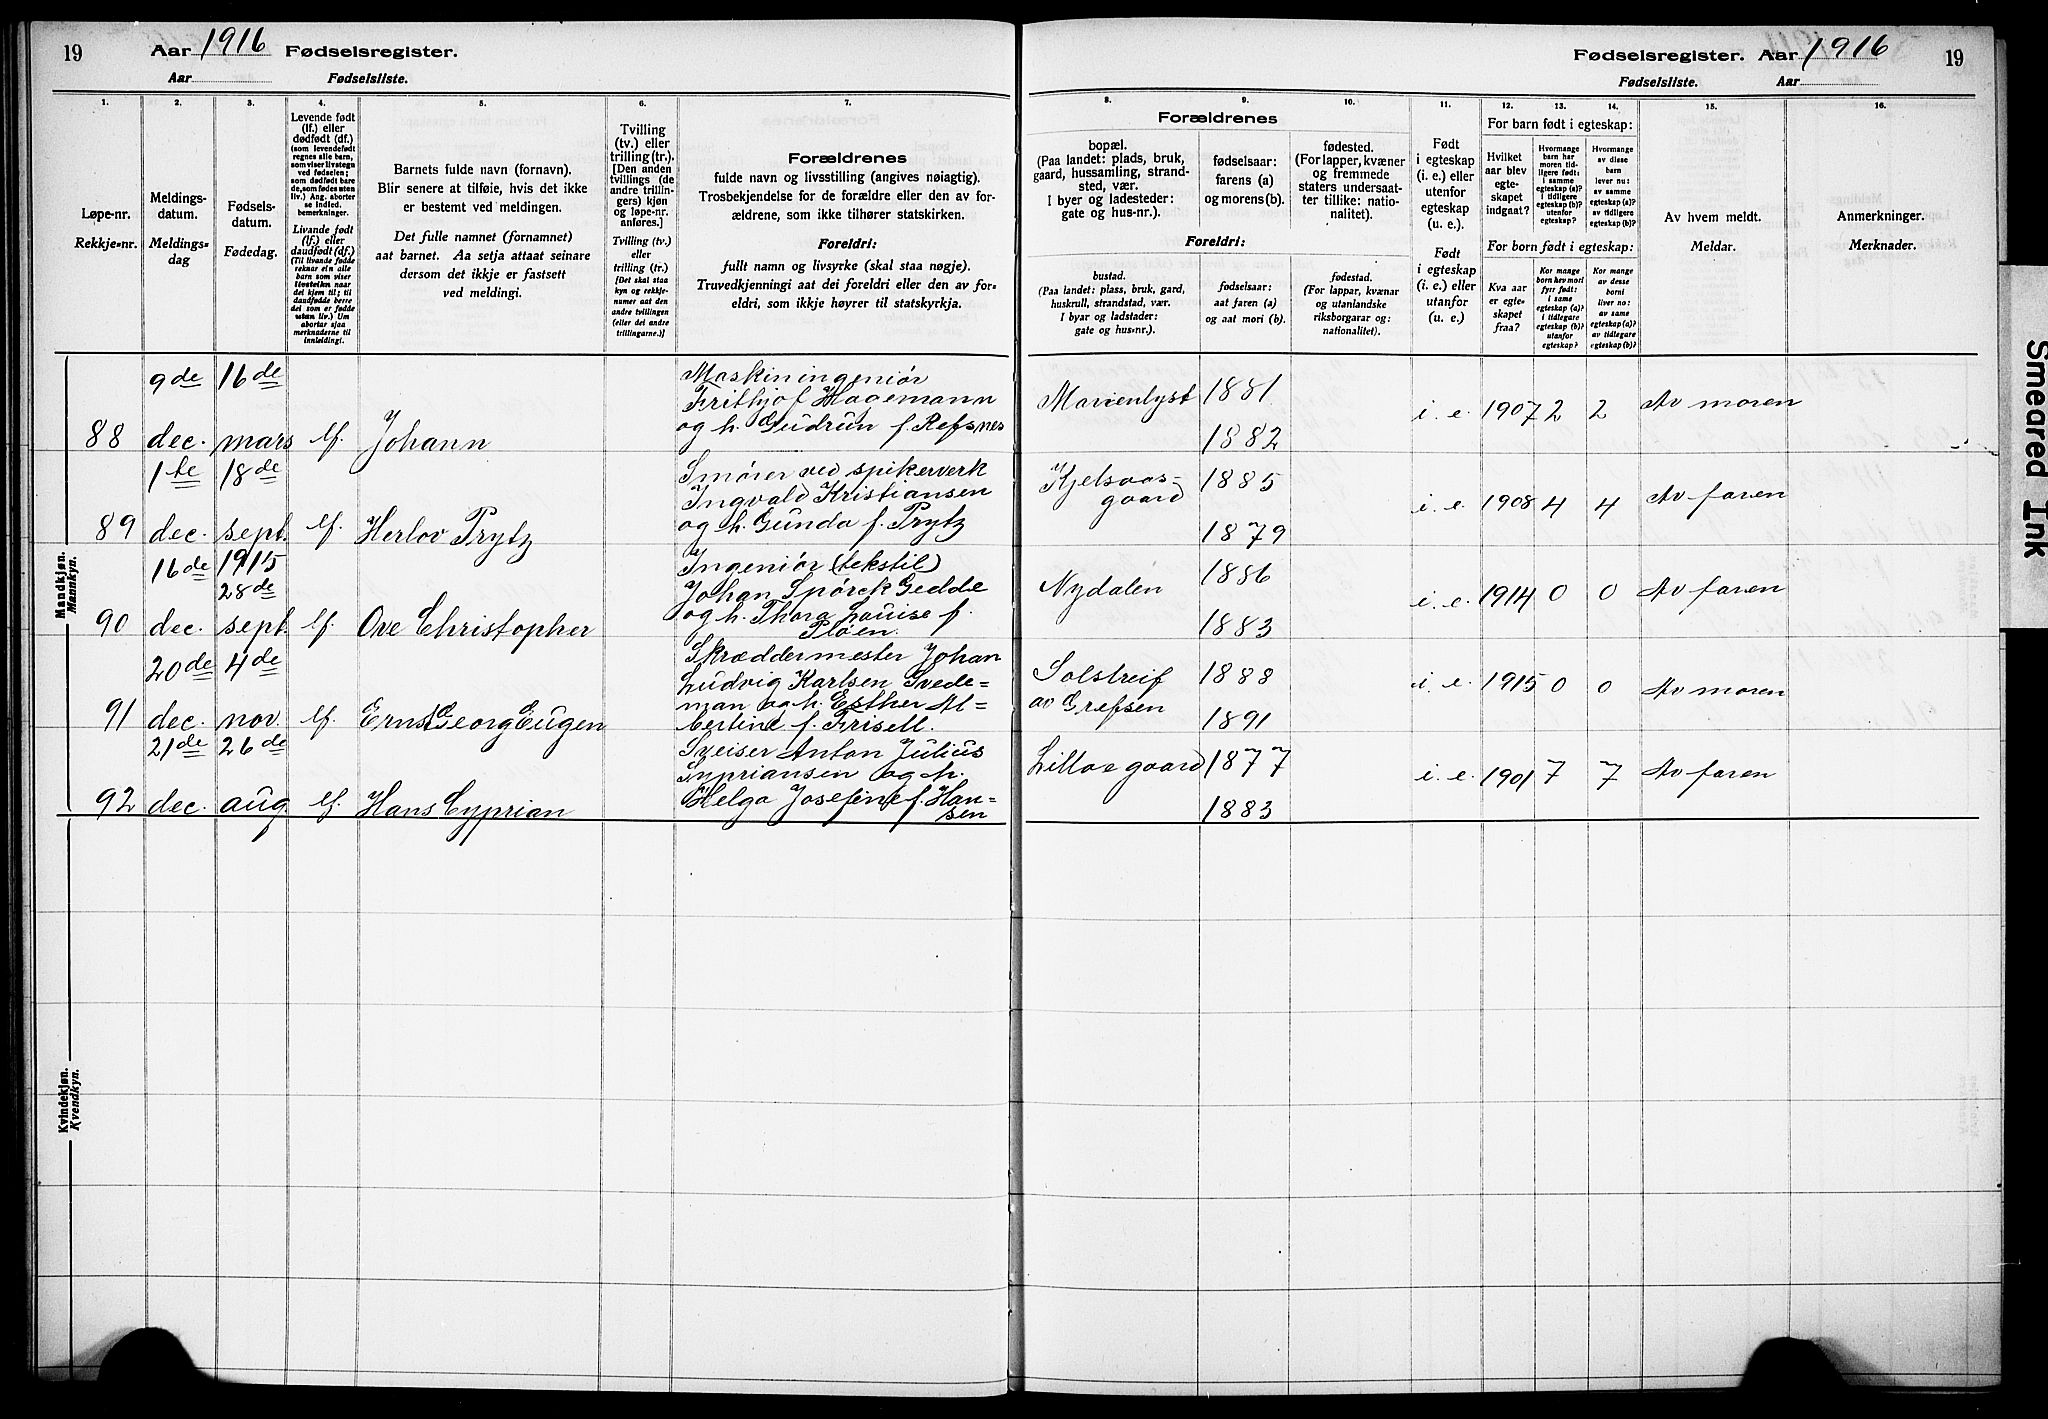 19 Aar 1916 Fødselsregister.
Aar Fødselsliste.
Fødselsregister. Aar 1916 19
Fødselsliste. Aar
1. 2. 3. 4. 5. 6. 7.
8. 9. 10. 11. 12. 13. 14. 15. 16.
Løpe-nr.
Rekkje-nr.
Meldings-
datum.
Meldings-
dag
Fødsels-
datum.
Fødedag.
Levende født
(lf.) eller
dødfødt (df.)
(som levendefødt
regnes alle barn,
som viser livstegn
ved fødselen;
som dødfødt bare
de, som fødes uten
liv.) Ang. aborter
se indled.
bemerkninger.
Livande født
(lf.) eller
daudfødt (df.)
(Til livande fødde
reknar ein alle
barn som viser
livsteikn naar
dei kjem til; til
daudfødde berre
dei som er fødde
utan liv.) Um
abortar sjaa
merknaderne til
innleidingi.
Barnets fulde navn (fornavn).
Blir senere at tilføie, hvis det ikke
er bestemt ved meldingen.
Det fulle namnet (fornamnet)
aat barnet. Aa setja attaat seinare
dersom det ikkje er fastsett
ved meldingi.
Tvilling
(tv.) eller
trilling (tr.).
[Den anden
tvillings (de
andre trillin-
gers) kjøn
og løpe-nr.
anføres.]
Tvilling (tv.)
eller
trilling (tr.)
[Det skal staa
kyn og rekkje-
numer aat den
andre tvillingen
(eller dei andre
trillingarne.)]
Forældrenes
fulde navn og livsstilling (angives nøiagtig).
Trosbekjendelse for de forældre eller den av for-
ældrene, som ikke tilhører statskirken.
Foreldri:
fullt namn og livsyrke (skal staa nøgje).
Truvedkjenningi aat dei foreldri eller den av for-
eldri, som ikkje høyrer til statskyrkja.
Forældrenes
bopæl.
(Paa landet: plads, bruk,
gaard, hussamling, strand-
sted, vær.
I byer og ladesteder:
gate og hus-nr.).
fødselsaar:
farens (a)
og morens (b).
fødested.
(For lapper, kvæner
og fremmede
staters undersaat-
ter tillike: natio-
nalitet).
Foreldri:
bustad.
(Paa landet: plass, bruk, gard,
huskrull, strandstad, vær.
I byar og ladstader:
gate og hus-nr.).
fødselsaar:
aat faren (a)
og aat mori (b).
fødestad.
(For lappar, kvænar
og utanlandske
riksborgarar og:
nationalitet).
Født
i egteskap
(i. e.) eller
utenfor
egteskap
(u. e.).
Født
i egteskap
(i. e.) eller
utanfor
(u. e.)
For barn født i egteskap:
Hvilket
aar blev
egte-
skapet
indgaat?
Hvormange
barn har
moren tid-
ligere født:
i samme
egteskap (a)?
i tidligere
egteskap (b)?
utenfor
egteskap?
Hvormange
av disse
barn
lever nu:
av samme
egteskap (a)?
av tidligere
egteskap (b)?
For born født i egteskap:
Kva aar
er egte-
skapet
fraa?
Kor mange
born hev mori
fyrr født:
i same
egteskap (a)?
i tidlegare
egteskap (b)?
utanfor
egteskap?
Kor mange
av desse
borni
liver no:
av same
egteskap (a)?
av tidlegare
egteskap (b)?
Av hvem meldt.
Meldar.
Anmerkninger.
Merknader.
Mandkjøn.
Mannkyn.
9de 16de Maskiningeniør
Frithjof Hagemann Marienlyst 1881
88 dec. mars lf. Johann og h. Gudrun f. Refsnes 1882 i. e. 1907 2 2 Av moren
1ste 18de Smører ved spikerverk
Ingvald Kristiansen Kjelsaas- 1885
gaard
89 dec. sept. lf. Herlov Prytz og h. Gunda f. Prytz 1879 i. e. 1908 4 4 Av faren
16de 1915 Ingeniør (tekstil)
28de Johan Spørck Gedde Nydalen 1886
90 dec. sept. lf. Ove Christopher og h. Thora Louise f. 1883 i. e. 1914 0 0 Av faren
Pløen.
20de 4de Skræddermester Johan
Ludvig Karlsen Svede- Solstreif 1888
man og h. Esther Al- av Grefsen
91 dec. nov. lf. Ernst Georg Eugen bertine f. Frisell. 1891 i. e. 1915 0 0 Av moren
21de 26de Sveiser Anton Julius
Cypriansen og h. Lilloe gaard 1877
92 dec. aug. lf. Hans Cyprian Helga Josefine f. Han- 1883 i. e. 1901 7 7 Av faren
sen
Kvindekjøn.
Kvendkyn.
Smeared Ink